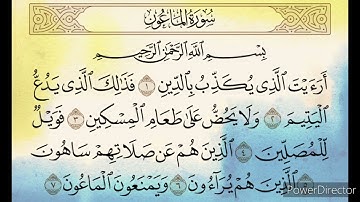 سُورَةُ المَاعُونَ
بِسْمِ ٱللَّهِ ٱلرَّحْمَٰنِ ٱلرَّحِيمِ
أَرَءَيْتَ ٱلَّذِى يُكَذِّبُ بِٱلدِّينِ ١ فَذَٰلِكَ ٱلَّذِى يَدُعُّ
ٱلْيَتِيمَ ٢ وَلَا يَحُضُّ عَلَىٰ طَعَامِ ٱلْمِسْكِينِ ٣ فَوَيْلٌ
لِّلْمُصَلِّينَ ٤ ٱلَّذِينَ هُمْ عَن صَلَاتِهِمْ سَاهُونَ
٥ ٱلَّذِينَ هُمْ يُرَآءُونَ ٦ وَيَمْنَعُونَ ٱلْمَاعُونَ ٧
PowerDirector